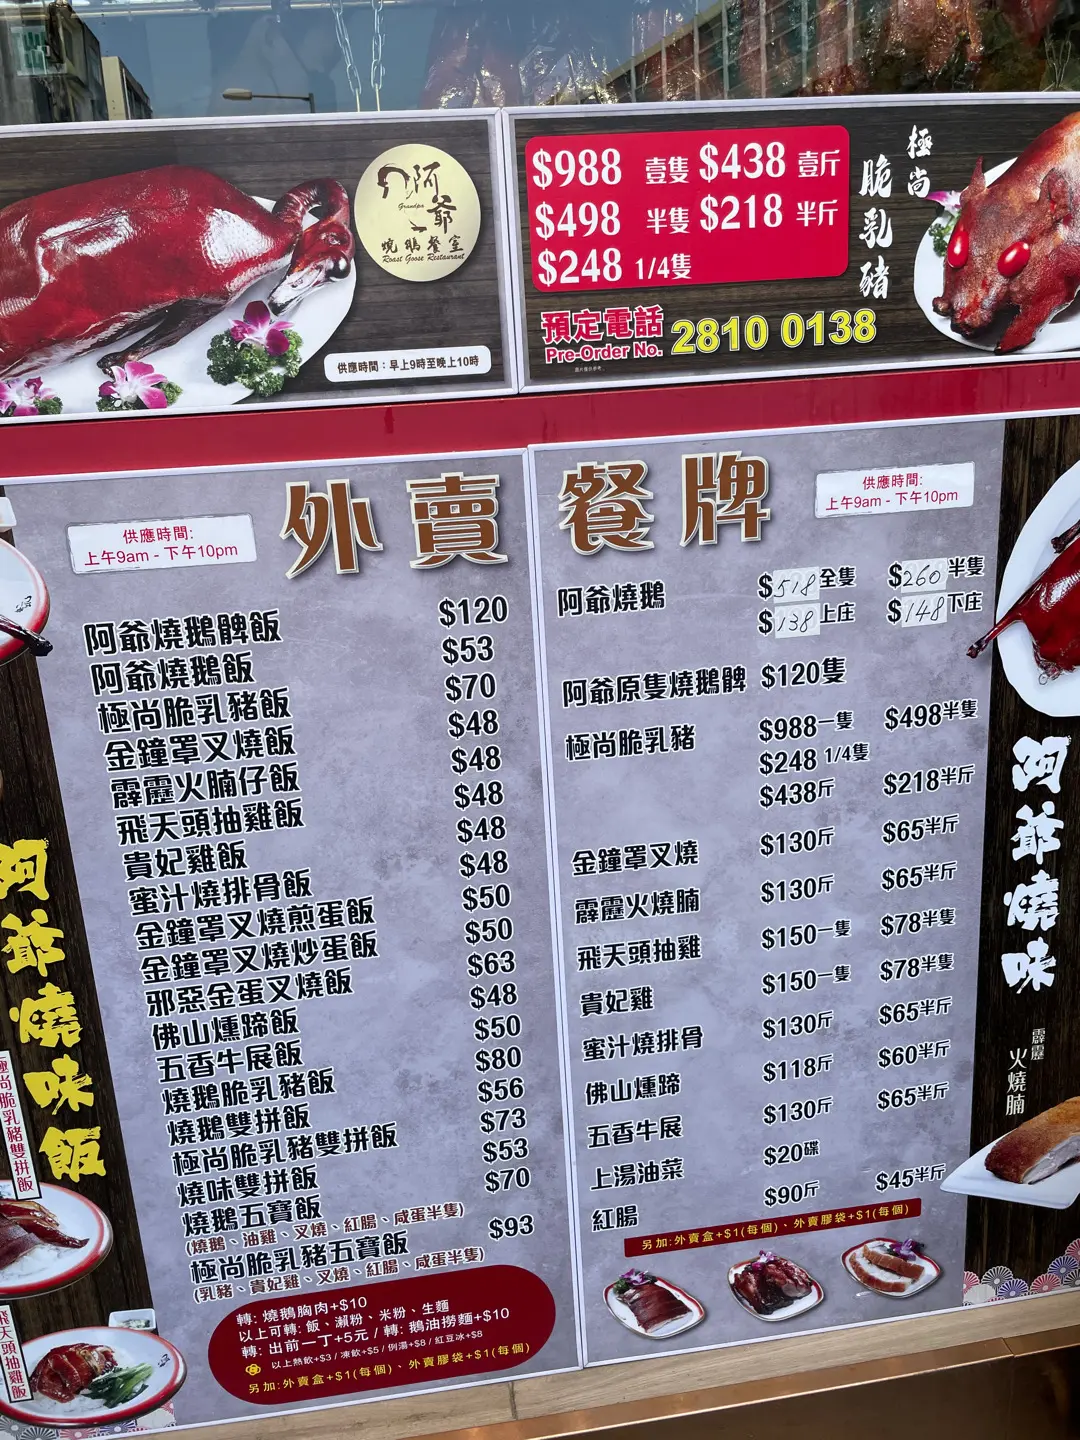 阿爺
Grandpa
燒鵝餐室
Roast Goose Restaurant
供應時間：早上9時至晚上10時
$988 壹隻 $438 壹斤
$498 半隻 $218 半斤
$248 1/4隻
極尚
脆乳豬
預定電話
Pre-Order No. 2810 0138
外賣餐牌
供應時間:
上午9am - 下午10pm
阿爺燒鵝髀飯 $120
阿爺燒鵝飯 $53
極尚脆乳豬飯 $70
金鐘罩叉燒飯 $48
霹靂火腩仔飯 $48
飛天頭抽雞飯 $48
貴妃雞飯 $48
蜜汁燒排骨飯 $48
金鐘罩叉燒煎蛋飯 $50
金鐘罩叉燒炒蛋飯 $50
邪惡金蛋叉燒飯 $63
佛山燻蹄飯 $48
五香牛展飯 $50
燒鵝脆乳豬飯 $80
燒鵝雙拼飯 $56
極尚脆乳豬雙拼飯 $73
燒味雙拼飯 $53
燒鵝五寶飯 $70
(燒鵝、油雞、叉燒、紅腸、咸蛋半隻)
極尚脆乳豬五寶飯 $93
(乳豬、貴妃雞、叉燒、紅腸、咸蛋半隻)
轉: 燒鵝胸肉+$10
以上可轉: 飯、瀨粉、米粉、生麵
轉: 出前一丁+5元 / 轉: 鵝油撈麵+$10
以上熱飲+$3 / 凍飲+$5 / 例湯+$8 / 紅豆冰+$8
另加:外賣盒+$1(每個)、外賣膠袋+$1(每個)
供應時間:
上午9am - 下午10pm
阿爺燒鵝 $518全隻 $260半隻
$138上庄 $148下庄
阿爺原隻燒鵝髀 $120隻
極尚脆乳豬 $988一隻 $498半隻
$248 1/4隻
$438斤 $218半斤
金鐘罩叉燒 $130斤 $65半斤
霹靂火燒腩 $130斤 $65半斤
飛天頭抽雞 $150一隻 $78半隻
貴妃雞 $150一隻 $78半隻
蜜汁燒排骨 $130斤 $65半斤
佛山燻蹄 $118斤 $60半斤
五香牛展 $130斤 $65半斤
上湯油菜 $20碟
紅腸 $90斤 $45半斤
另加:外賣盒+$1(每個)、外賣膠袋+$1(每個)
阿爺燒味飯
極尚脆乳豬雙拼飯
飛天頭抽雞飯
阿爺燒味
霹靂
火燒腩